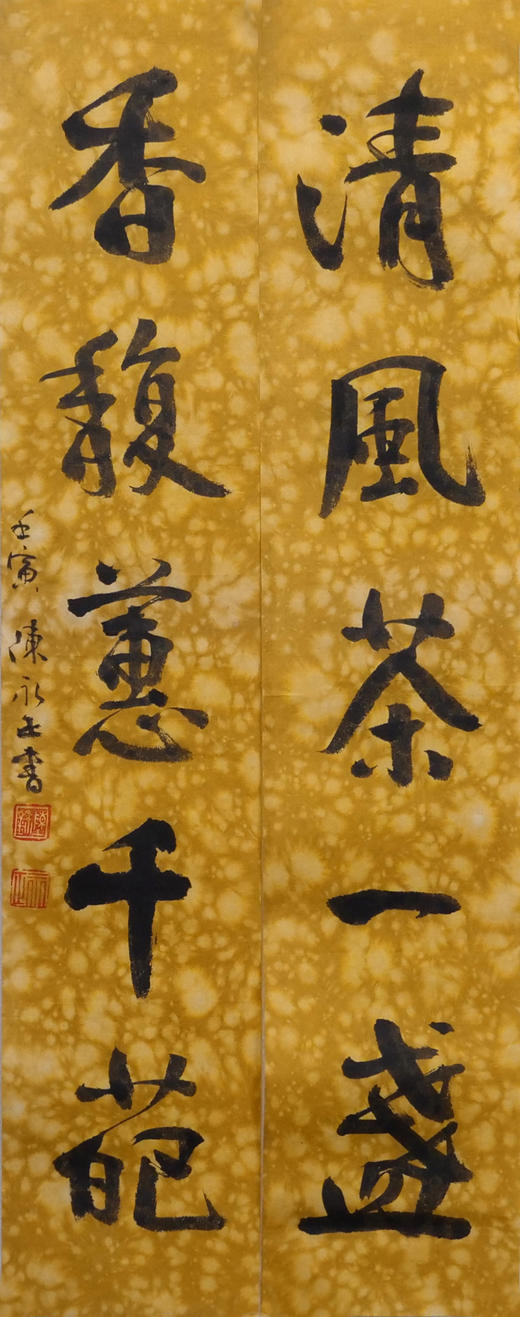 清風茶一盞
香馥蕙千葩
壬寅 陳永正書